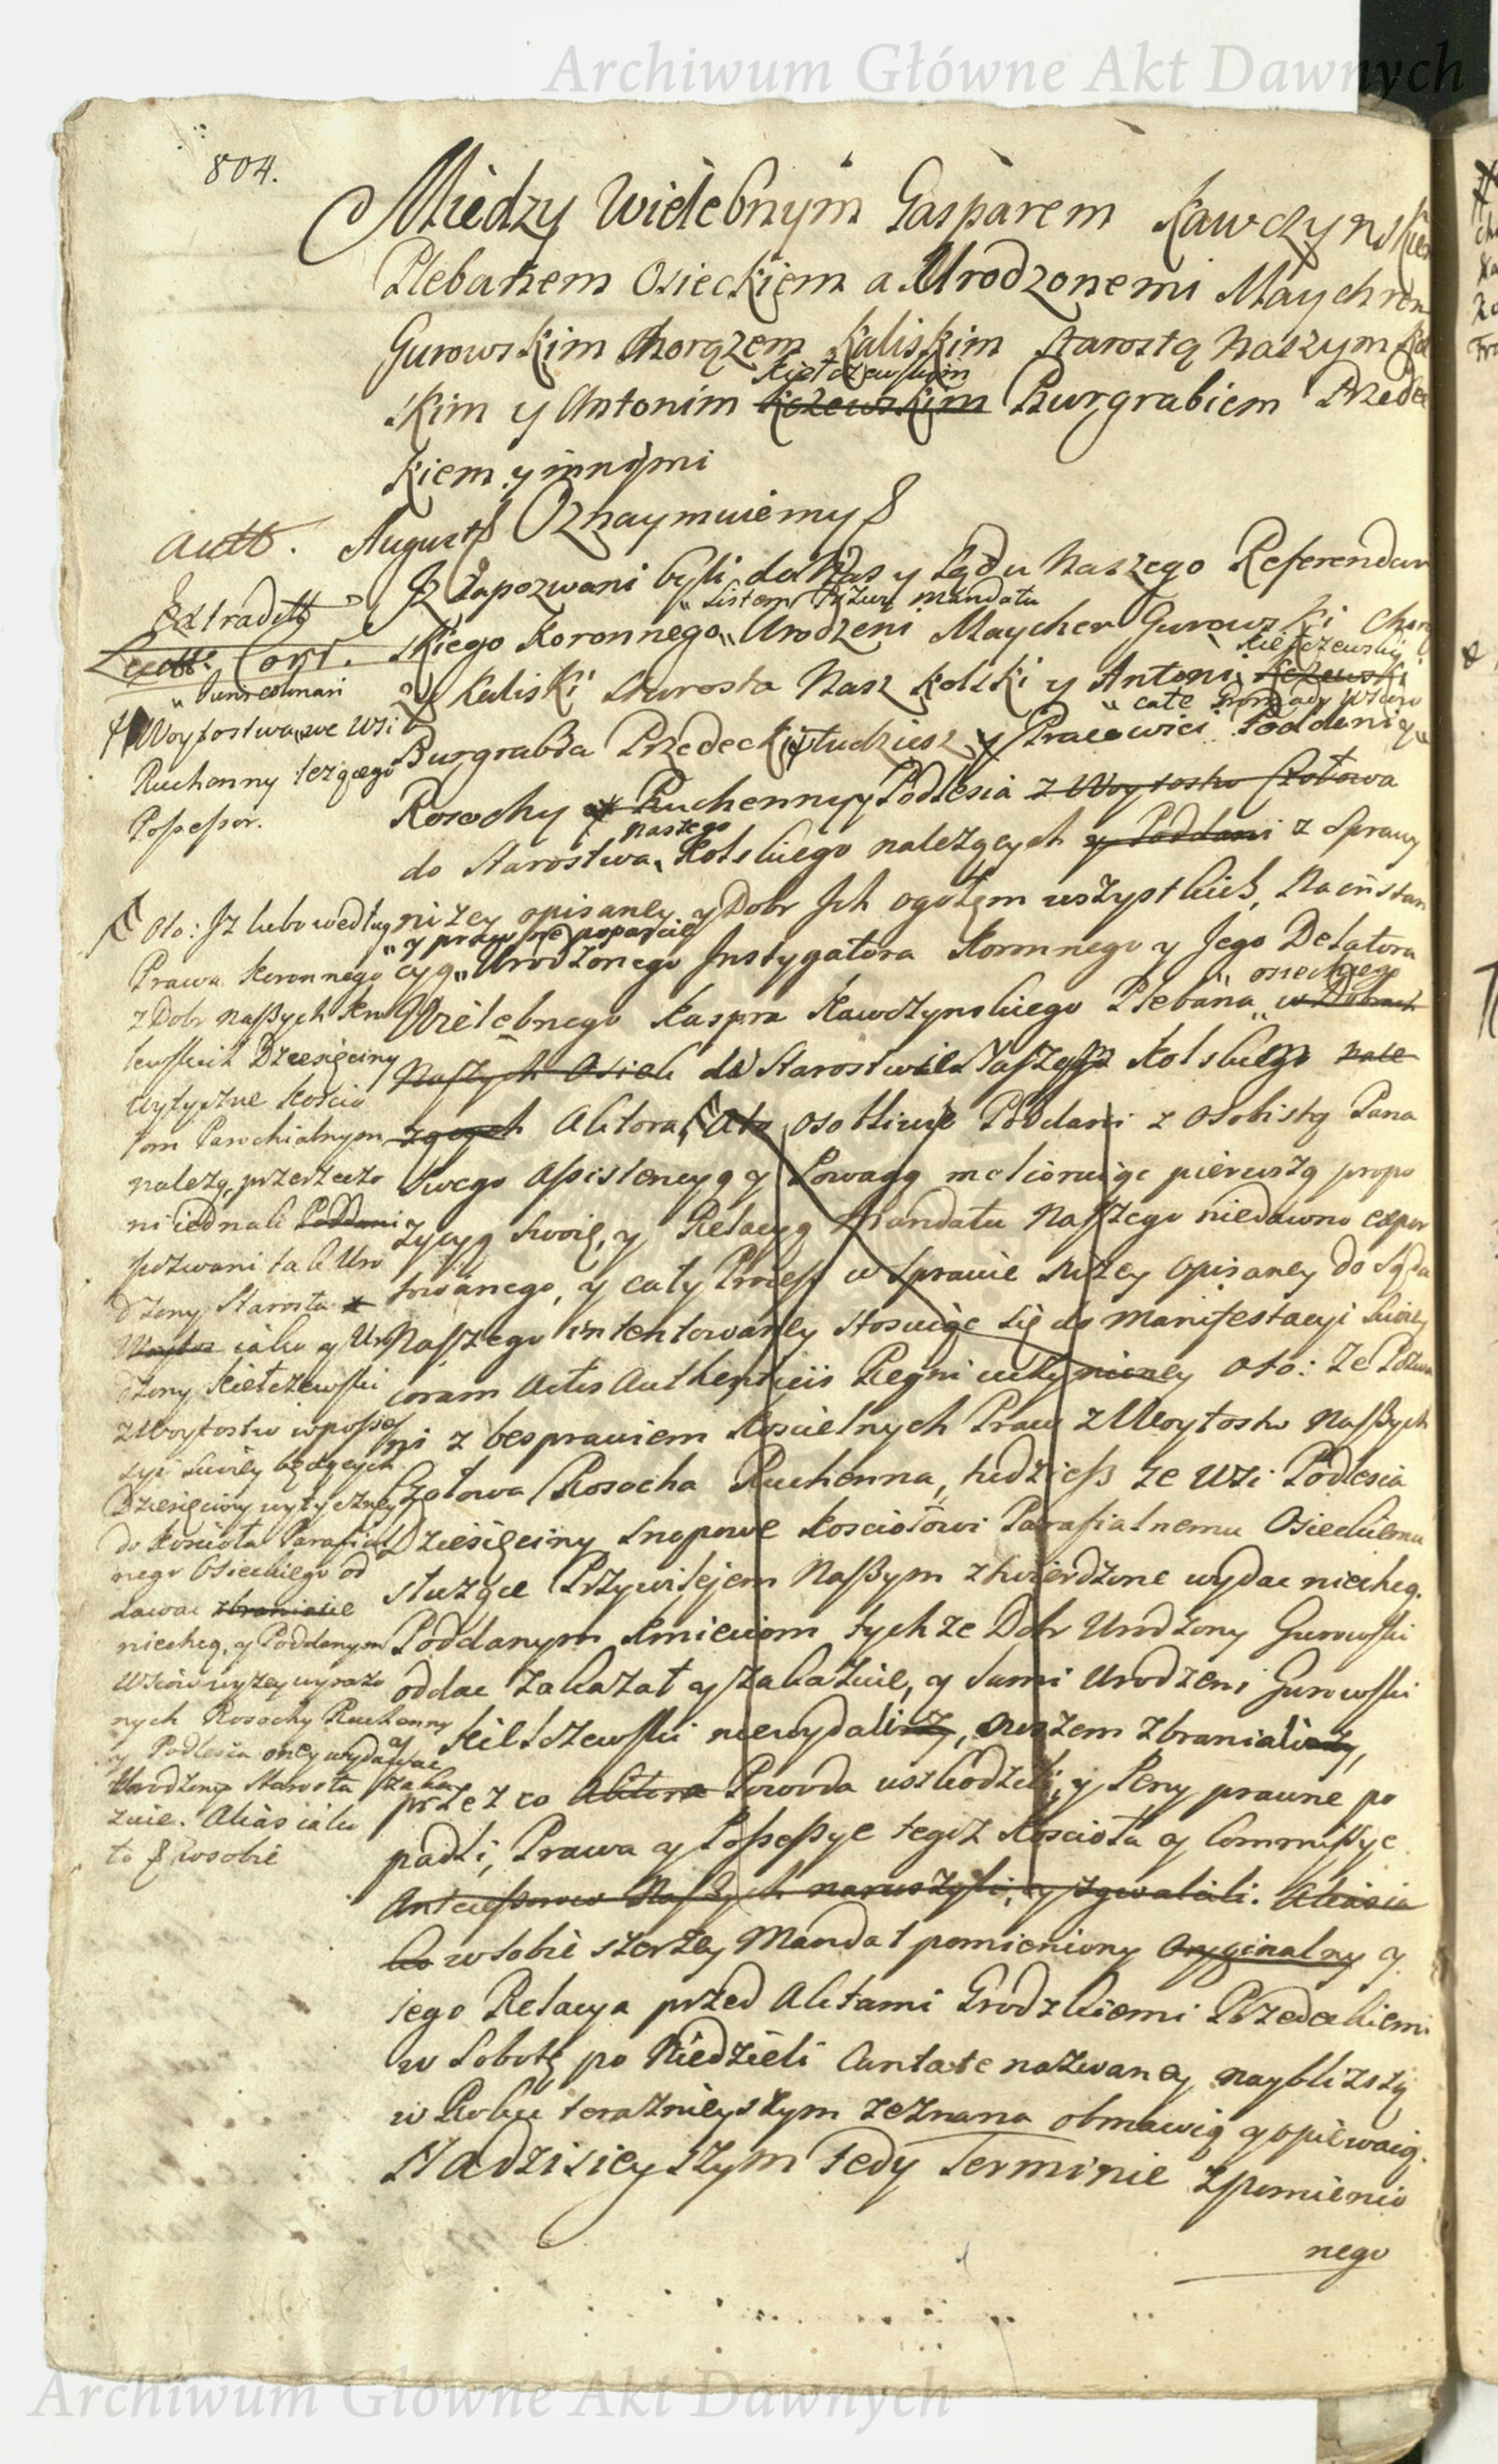 Archiwum Główne Akt Dawnych
804.
Między Wielebnym Gasparem Kawczynskiem
Plebanem Osieckiem a Urodzonemi Maychrem
Gurowskim Chorązem Kaliskim Starostą Naszym Kol
Kiełczewskim
skim y Antonim Kczewskim Burgrabiem Przedec
kiem y innymi
August Oznaymuiemy
Jz Zapozwani byli do Nas y Sądu Naszego Referendar
Listem Przez Mandatu
skiego Koronnego Urodzeni Maycher Gurowski Chorą
Kiełczewski
zy Kaliski Starosta Nasz Kolski y Antoni Kczewski
całe Gromady Wsiow
Burgrabia Przedecki tudziesz y Pracowici Poddani
Rosochy y Ruchenny y Podlesia z Woytostw Czołowa
naszego
do Starostwa Kolskiego nalezących y Poddani z Sprawy
nizey opisaney y Dobr Jch ogołem wszystkich, Na instan
y prawne poparcie
cyą Urodzonego Instygatora Koronnego y Jego Delatora
osieckiego
Wielebnego Kaspra Kawczynskiego Plebana w Dobrach
Naszych Osiek do Starostwa Naszego Kolskiego nale
zących Aktora, Oto osobliwie Poddani z Osobistą Pana
Swego Assistencyą y Powagą melioruiąc pierwszą propo
zycyą Swoię, y Relacyą Mandatu Naszego niedawno expor
towanego, y cały Process w Sprawie nizey opisaney do Sądu
Naszego intentowaney stosuiąc się do Manifestacyi Swoiey
coram Actis Authenticis Regni uczynioney Oto: Ze Pozwa
ni z besprawiem Koscielnych Praw z Woytostw Naszych
Czołowa Rosocha Ruchenna, tudziesz ze Wsi Podlesia
Dziesięciny Snopowe Kosciołowi Parafialnemu Osieckiemu
słuzące Przywilejem Naszym ztwierdzone wydac niechcą.
Poddanym Kmieciom tychze Dobr Urodzony Gurowski
oddac zakazał y zakazuie, y sami Urodzeni Gurowski
y Kiełczewski niewydali, owszem zbraniali,
przez co Aktora Powoda uszkodzili, y Peny prawne po
padli, Prawa y Possessye tegoz Kosciola y Commissye
Antecessorow Naszych naruszyli, y zgwałcili. Alias ia
ko w sobie szerzey Mandat pomieniony Oryginalny y
jego Relacya przed Aktami Grodzkiemi Przedeckiemi
w Sobotę po Niedzieli Cantate nazwaney nayblizszą
w Roku teraznieyszym zeznana obmawią y opiewaią.
Na dzisieyszym tedy Terminie z pomienio
nego
Extradtt
Corr.
Woytostwa we Wsi
Ruchenny lezącego
Possessor.
Oto: Jz lubo według
Prawa Koronnego
z Dobr Naszych Kro
lewskich Dziesięciny
wytyczne Koscio
łom Parochialnym
nalezą, przerzeczo
ni iednak Poddani
pozwani tak Uro
dzony Starosta
iako y Uro
dzony Kiełczewski
z Woytostw w posses
syi swoiey będących
Dziesięciny wytyczney
do Koscioła Parafial
nego Osieckiego od
dawac zbraniaie
niechcą, y Poddanym
Wsiow wyzey wyrazo
nych Rosochy Ruchenny
y Podlesia oney wydawac
Urodzony Starosta zaka
zuie. Alias iako
to w sobie
Archiwum Główne Akt Dawnych